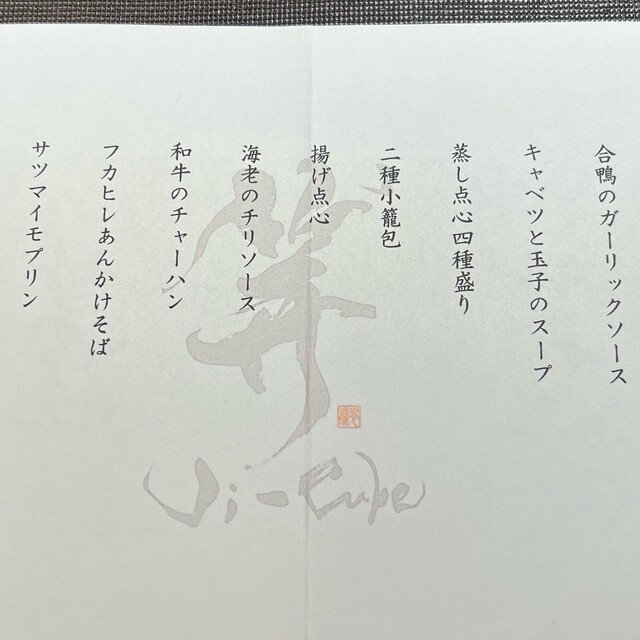 合鴨のガーリックソース
キャベツと玉子のスープ
蒸し点心四種盛り
二種小籠包
揚げ点心
海老のチリソース
和牛のチャーハン
フカヒレあんかけそば
サツマイモプリン
Ji-Cube